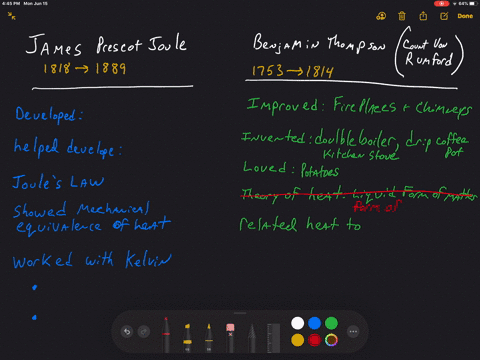 4:45 PM Mon Jun 15
64%
Done
JAMES Prescot Joule
1818 → 1889
Developed:
helped develope:
Joule's LAW
Showed Mechanical
equivalence of heat
Worked with Kelvin
Benjamin Thompson (Count Von
Rumford)
1753 → 1814
Improved: Fireplaces + Chimneys
Invented: double boiler, drip coffee
Pot
Kitchen Stove
Loved: Potatoes
Theory of heat: Liquid Form of matter
form of
related heat to